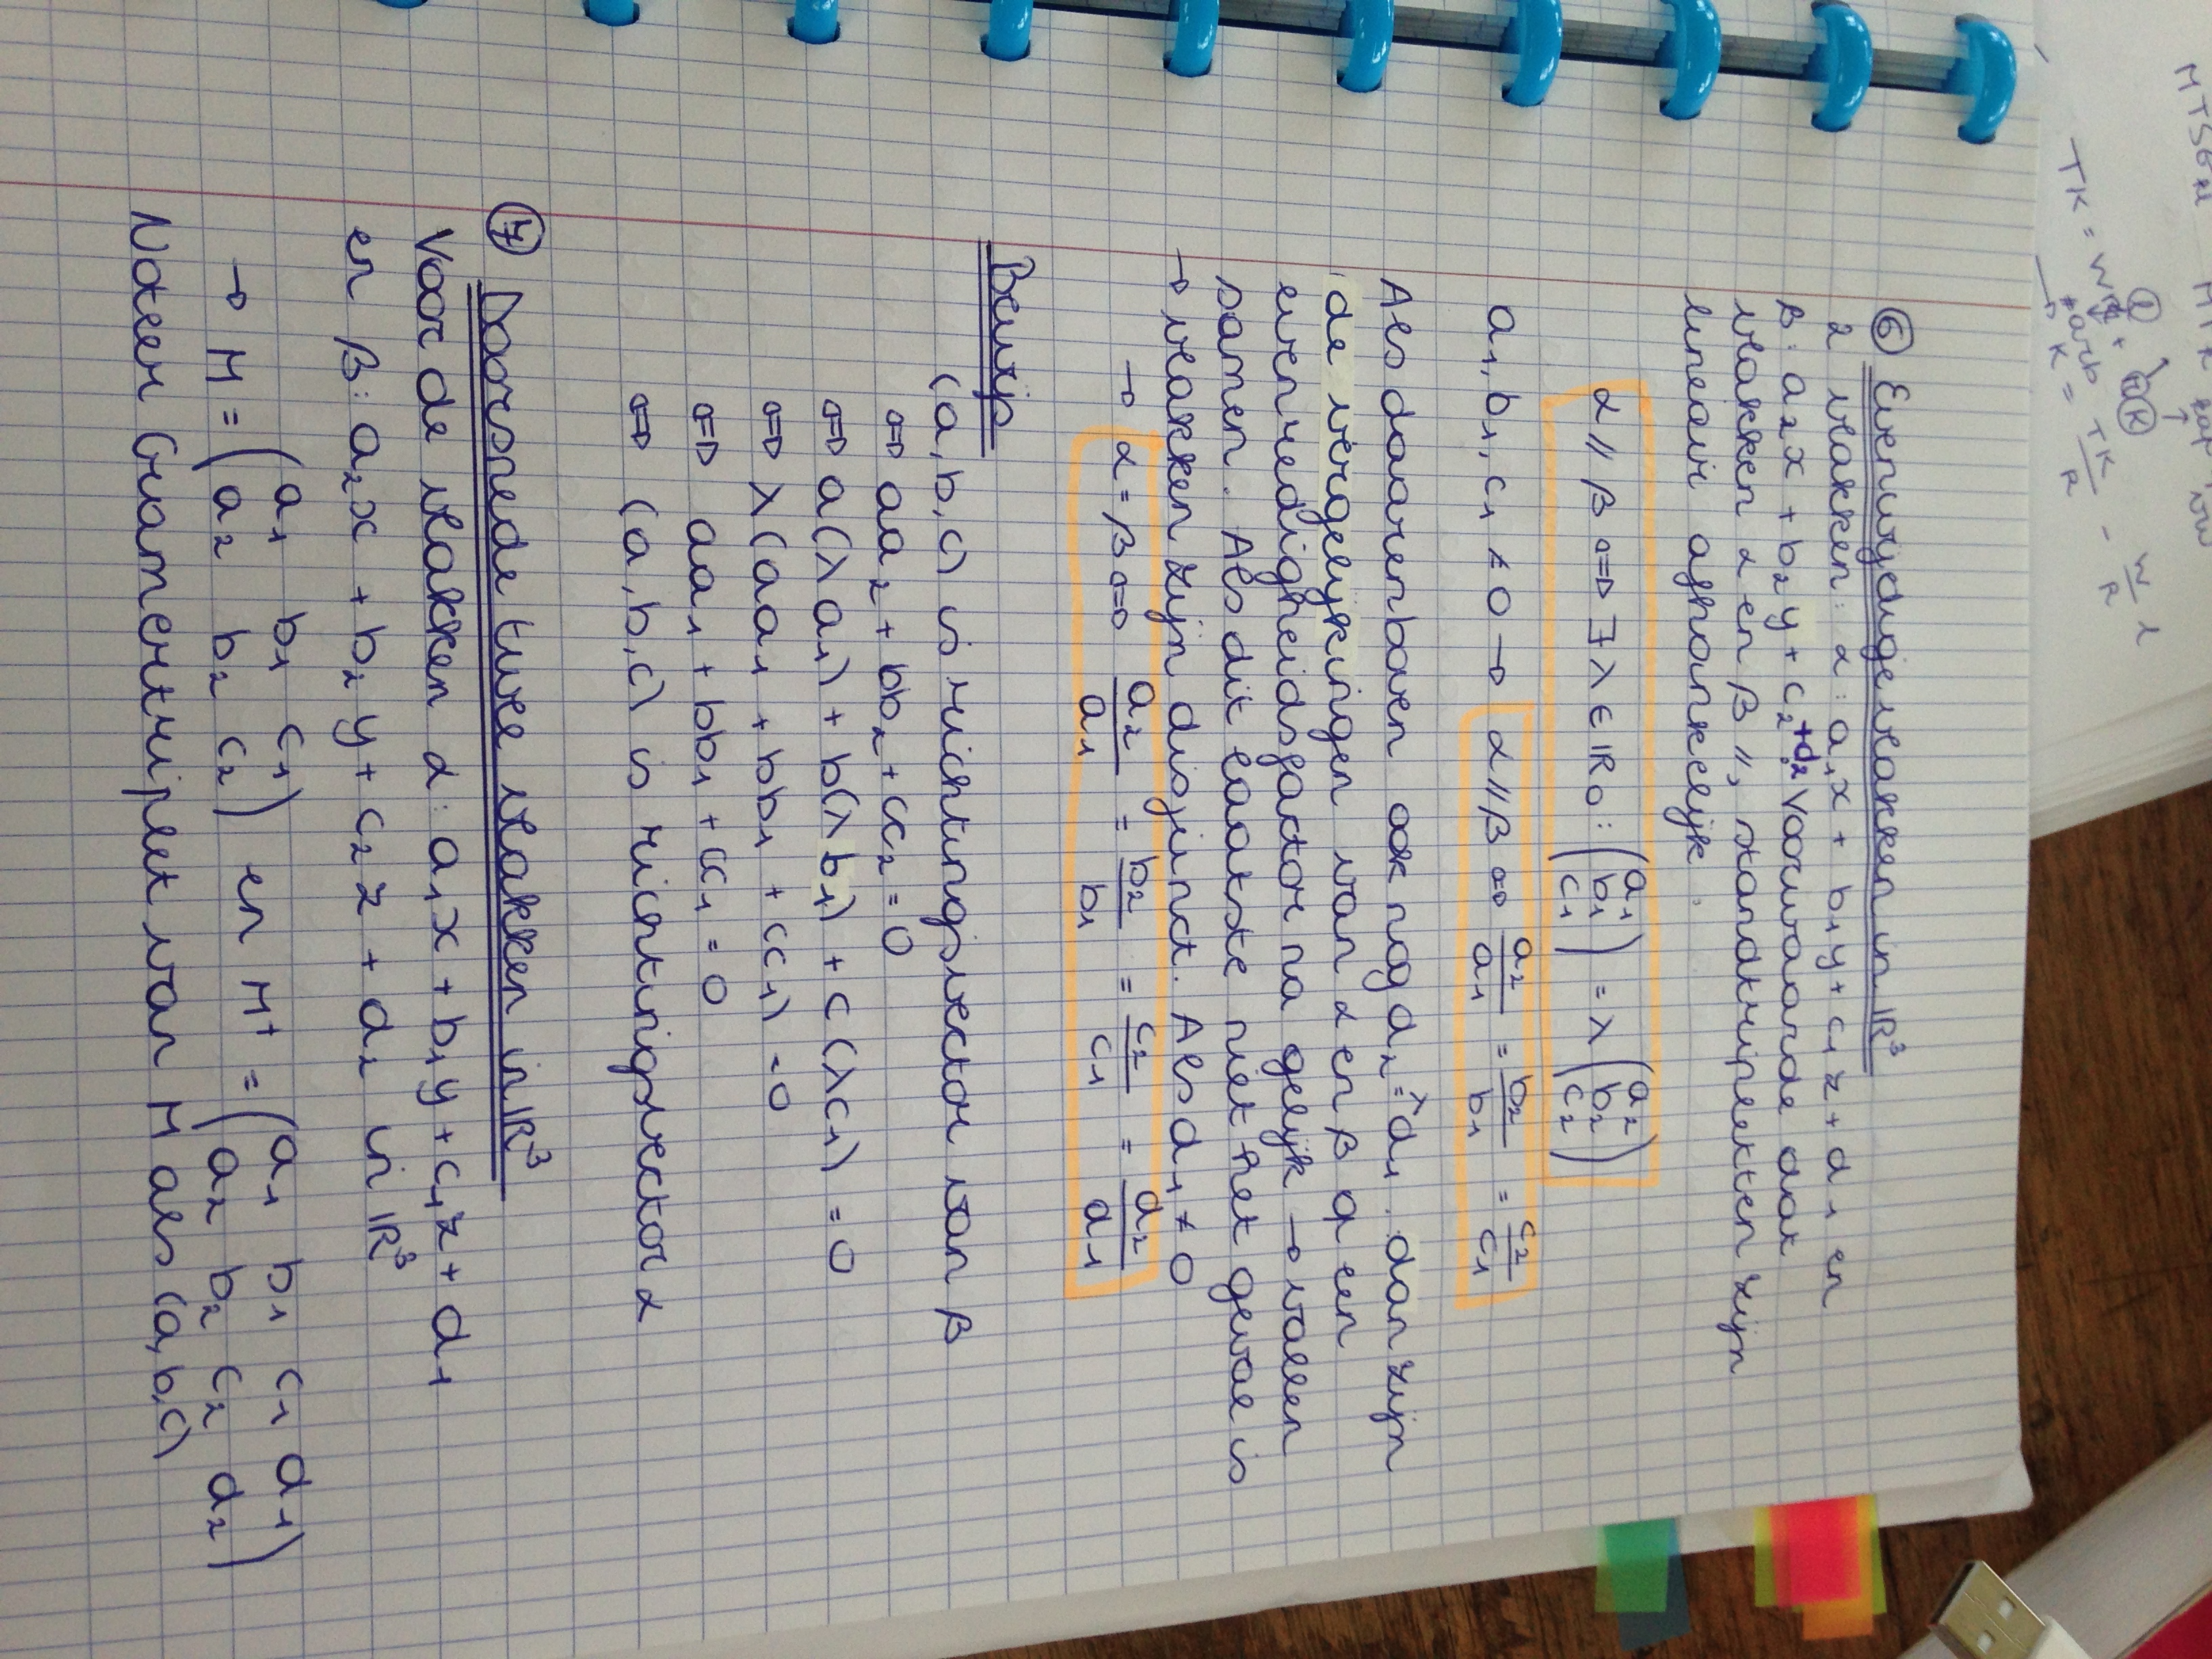 ⑥ Evenwijdige vlakken in ℝ³
2 vlakken: α: a₁x + b₁y + c₁z + d₁ en
β: a₂x + b₂y + c₂ +d₂ Voorwaarde dat
vlakken α en β //, standtripletten zijn
lineair afhankelijk.
α // β ⇔ ∃ λ ∈ ℝ₀: (a₁ b₁ c₁) = λ (a₂ b₂ c₂)
a₁, b₁, c₁ ≠ 0 → α // β ⇔ a₂/a₁ = b₂/b₁ = c₂/c₁
Als daarenboven ook nog d₂ = λd₁, dan zijn
de vergelijkingen van α en β op een
evenredigheidsfactor na gelijk → vallen
samen. Als dit laatste niet het geval is
→ vlakken zijn disjunct. Als d₁ ≠ 0
→ α = β ⇔ a₂/a₁ = b₂/b₁ = c₂/c₁ = d₂/d₁
Bewijs
(a, b, c) is richtingsvector van β
⇔ aa₂ + bb₂ + cc₂ = 0
⇔ a(λa₁) + b(λb₁) + c(λc₁) = 0
⇔ λ(aa₁ + bb₁ + cc₁) = 0
⇔ aa₁ + bb₁ + cc₁ = 0
⇔ (a, b, c) is richtingsvector α
⑦ Doorsnede twee vlakken in ℝ³
Voor de vlakken α: a₁x + b₁y + c₁z + d₁
en β: a₂x + b₂y + c₂z + d₂ in ℝ³
→ M = (a₁ b₁ c₁ a₂ b₂ c₂) en M⁺ = (a₁ b₁ c₁ d₁ a₂ b₂ c₂ d₂)
Noteer Gramentriplet van M als (a, b, c)
TK = w
K = TK/R - w/R L